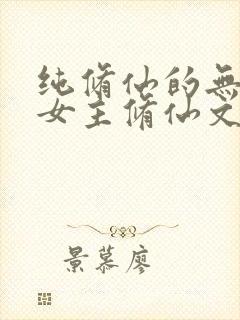 纯脩仙的無
女主脩仙文
景慕廖